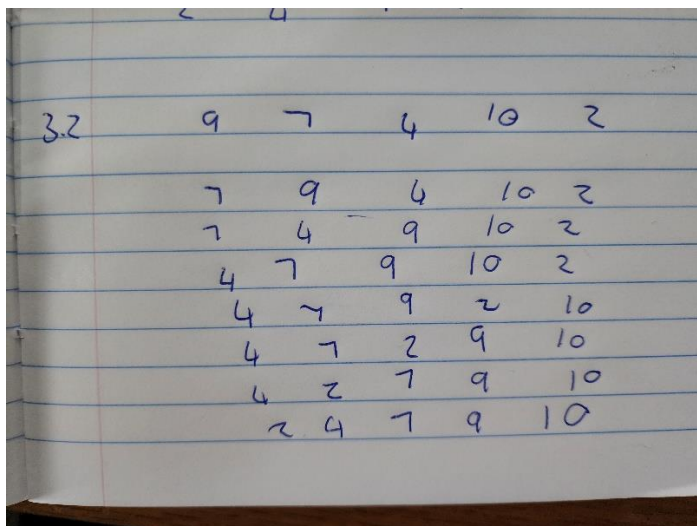 2 4
3.2 9 7 4 10 2
7 9 4 10 2
7 4 9 10 2
4 7 9 10 2
4 7 9 2 10
4 7 2 9 10
4 2 7 9 10
2 4 7 9 10